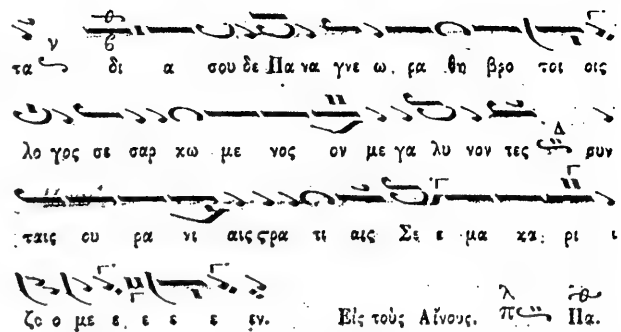 τα δι α σου δε Πα να γνε ω ρα θη βρο τοι οις
λο γος σε σαρ κω με νος ον με γα λυ νον τες συν
ταις ου ρα νι αις ςρα τι αις Σε ε μα κα ρι ι
ζο ο με ε ε ε ε εν. Εἰς τοὺς Αἴνους. Πα.